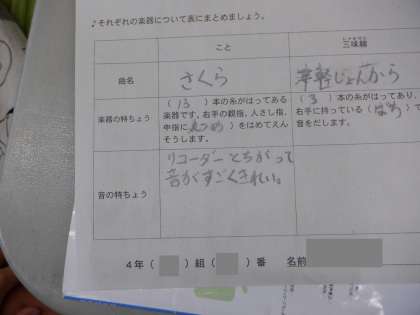 ♪それぞれの楽器について表にまとめましょう。
こと
しゃみせん
三味線
曲名
さくら
津軽じょんから
楽器の特ちょう
(13)本の糸がはってある
楽器です。右手の親指、人さし指、
中指に(つめ)をはめてえん
そうします。
(3)本の糸がはってあり、
右手に持っている(ばち)で
音をだします。
音の特ちょう
リコーダーとちがって
音がすごくきれい。
4年( )組( )番 名前